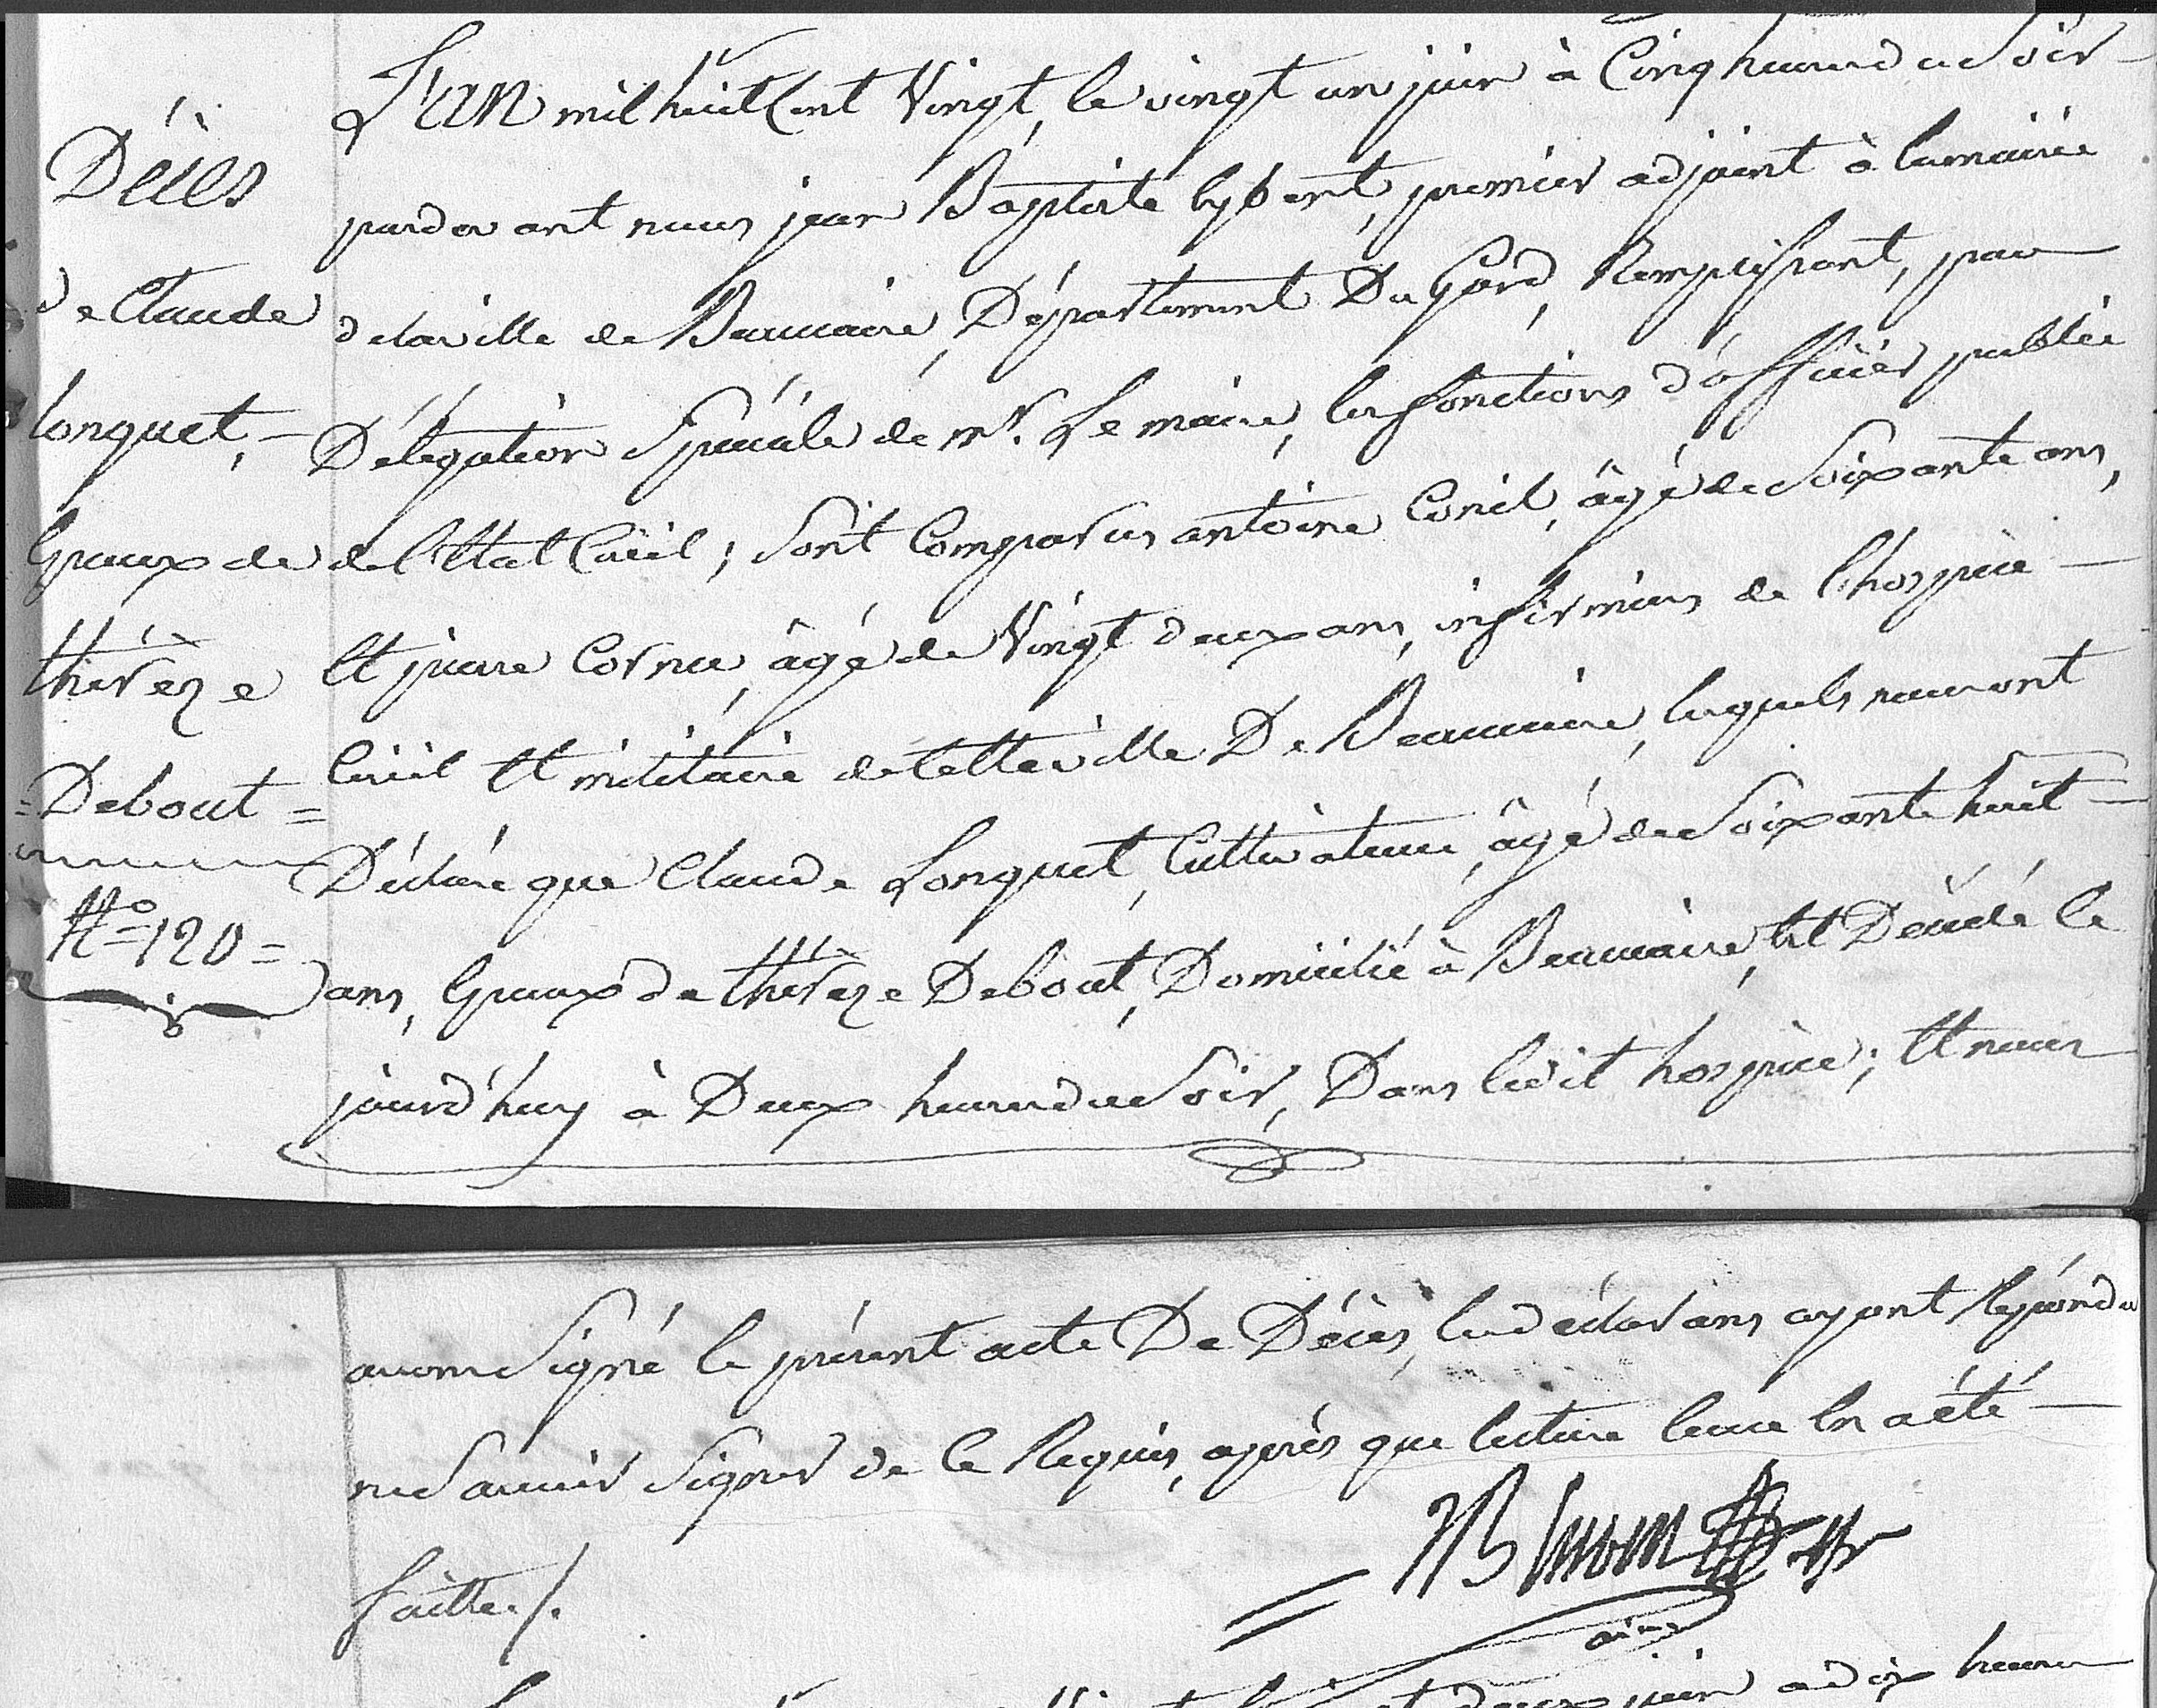 Décès
de Claude
Lonquet,
Epoux de
thérèze
= Debout =
N.º 120 =
L'an mil huit Cent Vingt, le vingt un juin à Cinq heures du Soir
pardevant nous jean Baptiste , premier adjoint à la mairie
de la ville de Beaucaire, Département Du Gard, Remplissant, par
Délégation Spéciale de Mr. Le maire, les fonctions d'officier public
de l'Etat Civil; Sont Comparus antoine Conil, âgé de Soixante ans,
Et pierre Cornu, âgé de Vingt deux ans, infirmiers de l'hospice
Civil Et militaire de Cette ville De Beaucaire, lesquels nous ont
Déclaré que Claude Lonquet, Cultivateur, âgé de Soixante huit
ans, Epoux de thérèze Debout, Domicilié à Beaucaire, Est Décédé ce
jourd'huy à Deux heures du Soir, Dans ledit hospice; Et nous
avons Signé le présent acte De Décès, les déclarans ayant Répondu
ne Savoir Signer de Ce Requis, après que lecture leur En a été
faitte./.
ainé
juin à dix heures